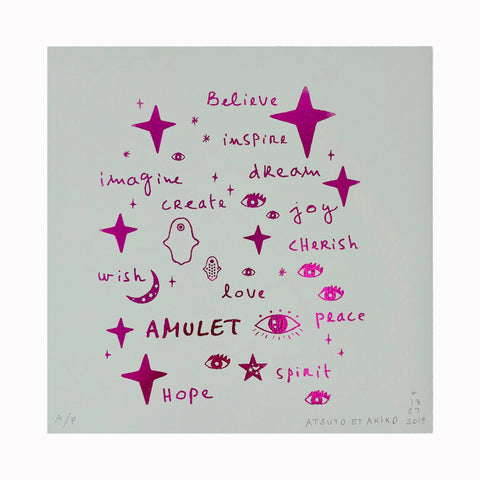 Believe
inspire
imagine
dream
create
joy
CHERISH
wish
love
AMULET
peace
spirit
Hope
A/P
ATSUYO ET AKIKO 2019
+
13
07